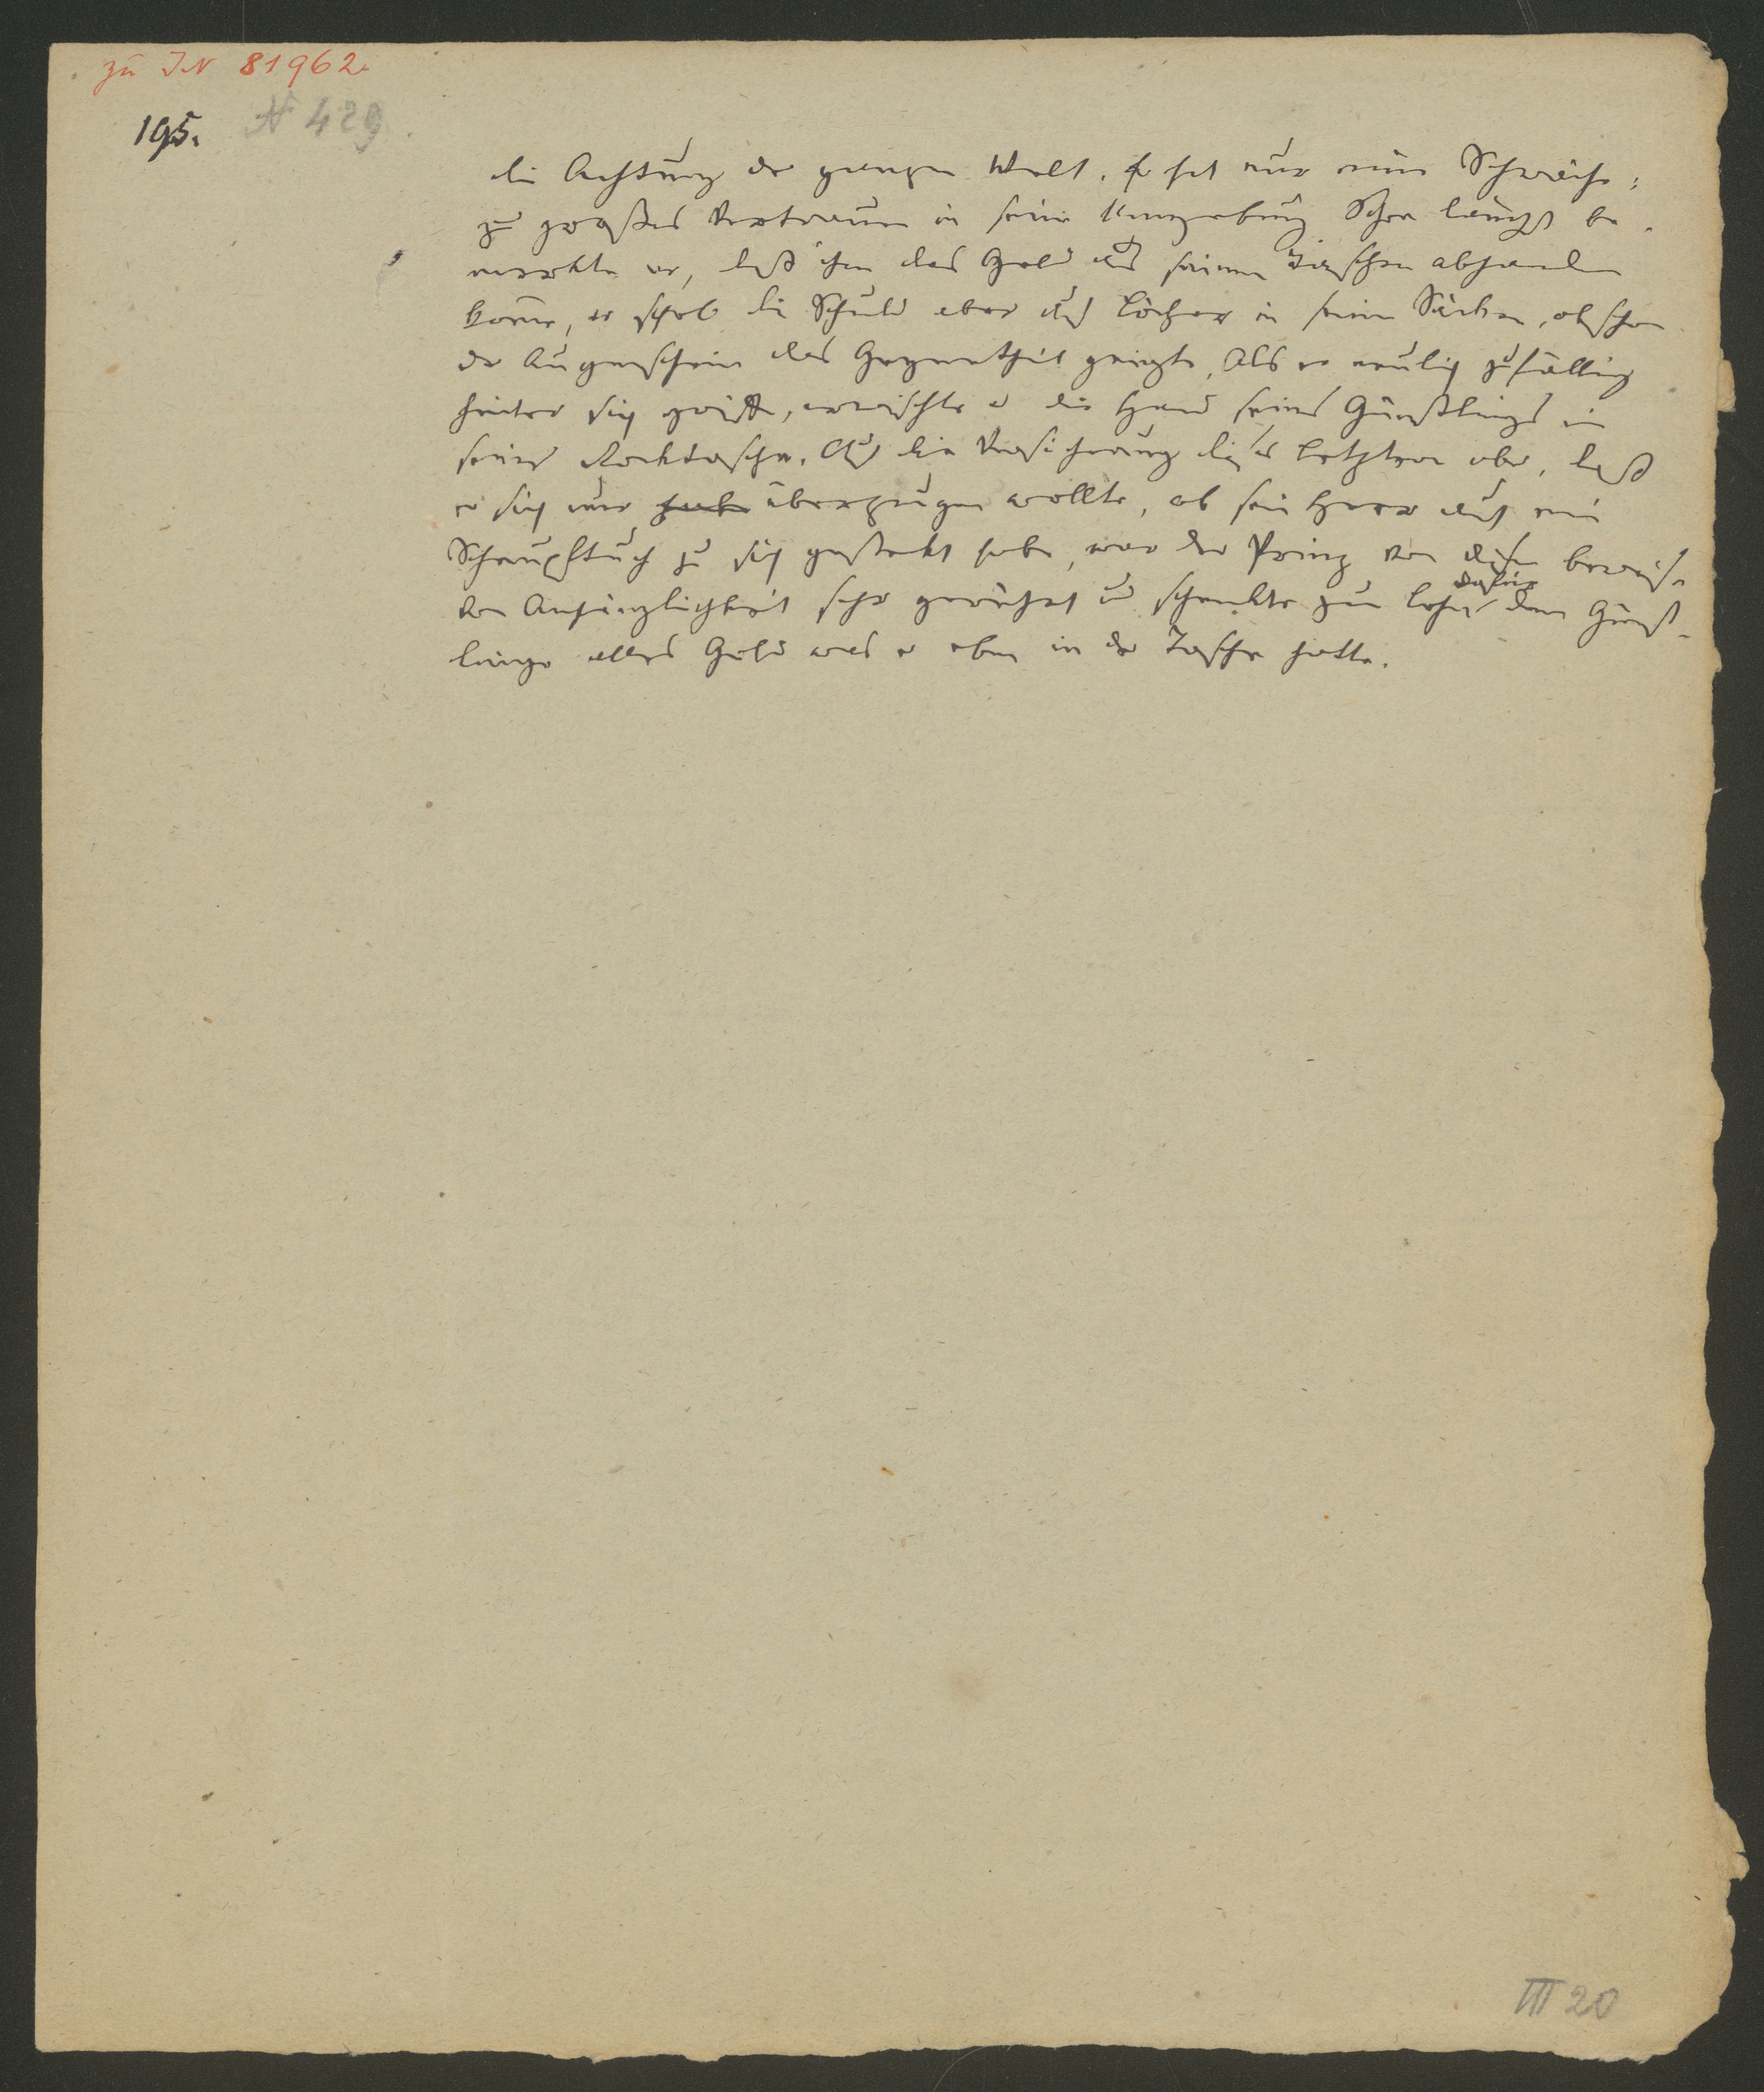 zu IN 81962.
195. N 429.
die Achtung der ganzen Welt. Er hat nur eine Schwäche:
zu großes Vertrauen in seine Umgebung. Schon längst be-
merkte er, daß ihm das Geld aus seinen Taschen abhanden
kome, er schob die Schuld aber auf Löcher in seinen Säcken, obschon
der Augenschein das Gegentheil zeigte. Als er neulich zufällig
hinter sich griff, erwischte er die Hand seines Günstlings in
seiner Rocktasche. Auf die Versicherung dieses Letztern aber, daß
er sich nur habe überzeugen wollte, ob sein Herr auch ein
Schnupftuch zu sich gesteckt habe, war der Prinz von dieser bewiese-
nen Anhänglichkeit sehr gerührt u schenkte zum Lohn dafür dem Günst-
linge alles Geld was er eben in der Tasche hatte.
III 20